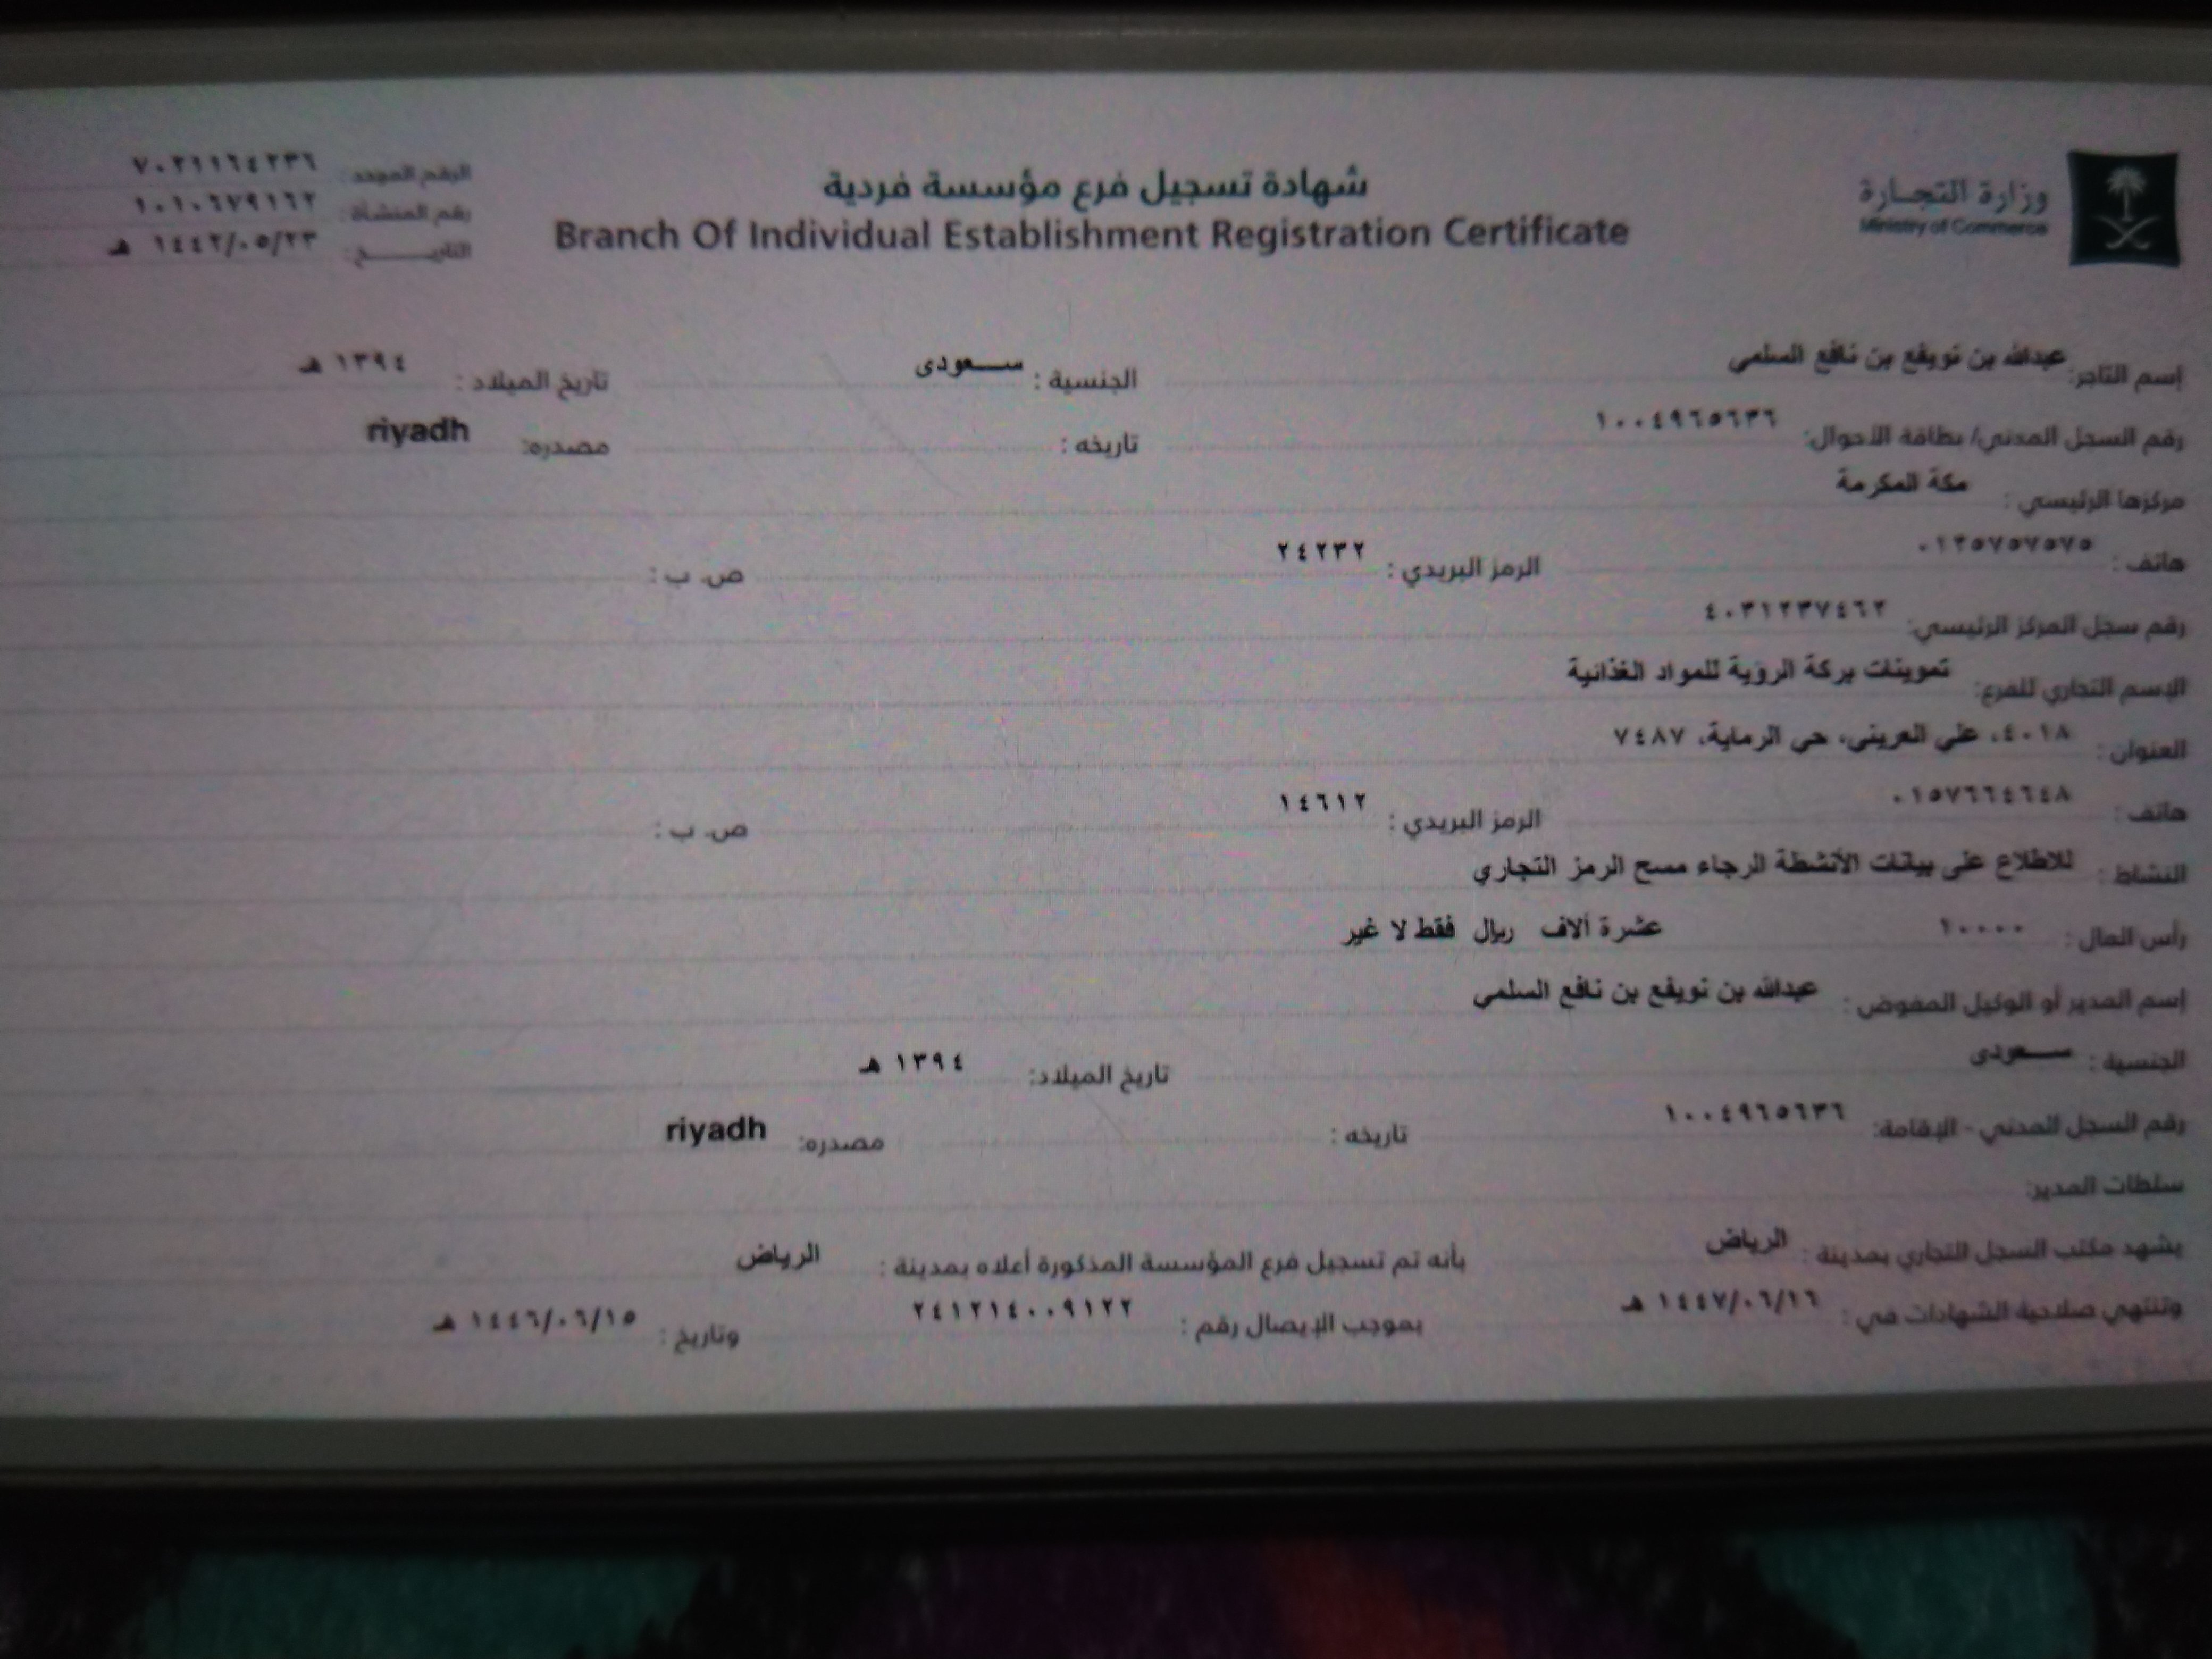 وزارة التجارة
Ministry of Commerce
شهادة تسجيل فرع مؤسسة فردية
Branch Of Individual Establishment Registration Certificate
الرقم الموحد : ٧٠٢١١٦٤٢٣٦
رقم المنشأة : ١٠١٠٦٧٩١٦٢
التاريـــــخ : ١٤٤٢/٠٥/٢٣ هـ
إسم التاجر: عبدالله بن نويفع بن نافع السلمي الجنسية : ســـعودى تاريخ الميلاد : ١٣٩٤ هـ
رقم السجل المدني/ بطاقة الأحوال: ١٠٠٤٩٦٥٦٣٦ تاريخه : مصدره: riyadh
مركزها الرئيسي : مكة المكرمة
هاتف : ٠١٢٥٧٥٧٥٧٥ الرمز البريدي : ٢٤٢٣٢ ص. ب :
رقم سجل المركز الرئيسي: ٤٠٣١٢٣٧٤٦٢
الإسم التجاري للفرع: تموينات بركة الروية للمواد الغذائية
العنوان : ٤٠١٨، علي العريني، حي الرماية، ٧٤٨٧
هاتف : ٠١٥٧٦٦٤٦٤٨ الرمز البريدي : ١٤٦١٢ ص. ب :
النشاط : للاطلاع على بيانات الأنشطة الرجاء مسح الرمز التجاري
رأس المال : ١٠٠٠٠ عشرة آلاف ريال فقط لا غير
إسم المدير أو الوكيل المفوض : عبدالله بن نويفع بن نافع السلمي
الجنسية : ســـعودى تاريخ الميلاد: ١٣٩٤ هـ
رقم السجل المدني - الإقامة: ١٠٠٤٩٦٥٦٣٦ تاريخه : مصدره: riyadh
سلطات المدير:
يشهد مكتب السجل التجاري بمدينة : الرياض بأنه تم تسجيل فرع المؤسسة المذكورة أعلاه بمدينة : الرياض
وتنتهي صلاحية الشهادات في : ١٤٤٧/٠٦/١٦ هـ بموجب الإيصال رقم : ٢٤١٢١٤٠٠٩١٢٢ وتاريخ : ١٤٤٦/٠٦/١٥ هـ